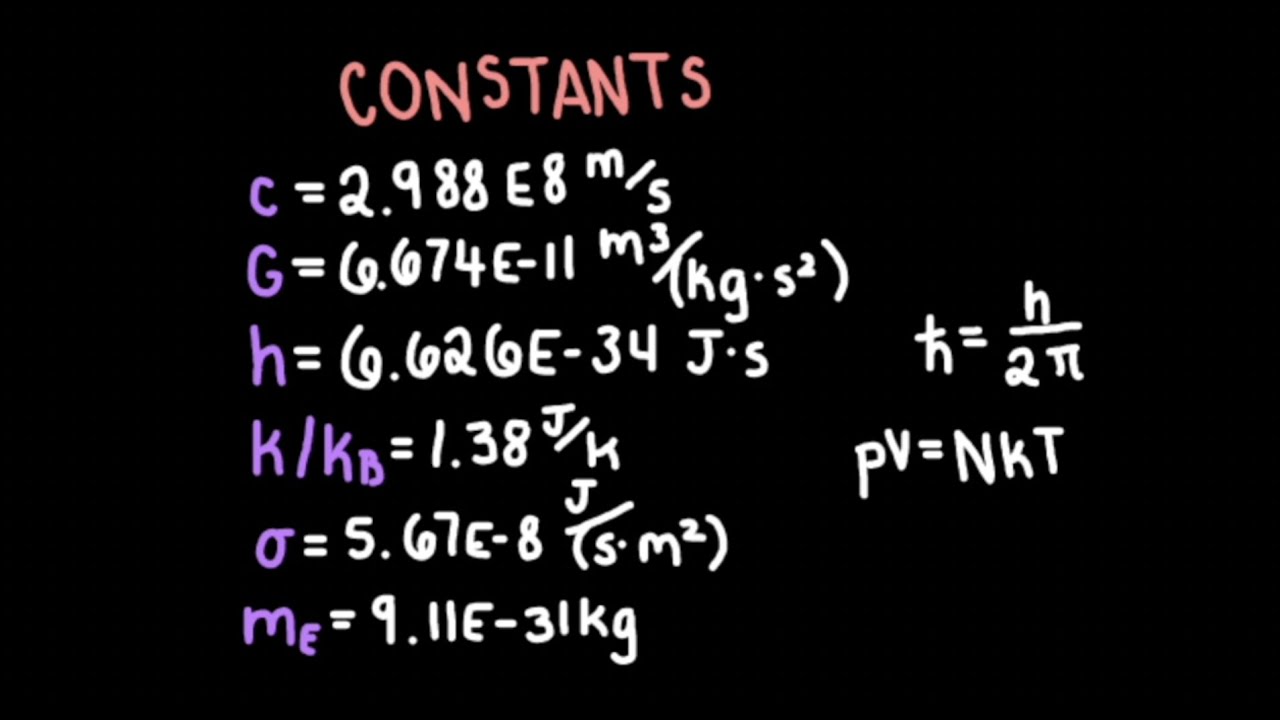 CONSTANTS
c = 2.988 E8 m/s
G = 6.674E-11 m³/(kg·s²)
h = 6.626E-34 J·s
ħ = h/2π
k/kB = 1.38 J/K
pV = NkT
σ = 5.67E-8 J/(s·m²)
mE = 9.11E-31kg